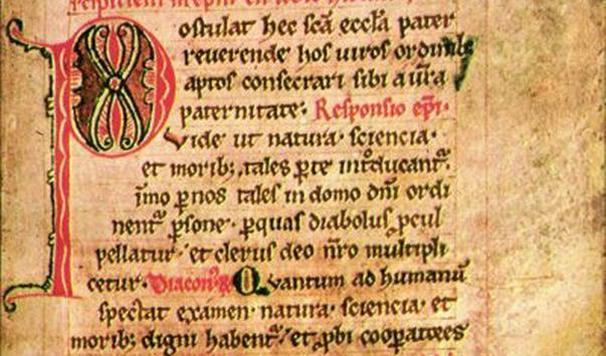 ostulat hec scā eccl'a pater
reverende hos uiros ordinib;
aptos consecrari sibi a ūra
paternitate. Responsio epī.
Vide ut natura. sciencia.
et morib; tales p te introducant.
īmo p nos tales in domo dnī ordi
nent psone. p quas diabolus pcul
pellatur et clerus deo nr̄o multipli
cetur. Diacon' Quantum ad humanū
spectat examen. natura. sciencia. et
morib; digni habent. et pbi coopatores